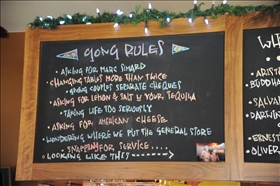 GONG RULES
• ASKING FOR MARC SIMARD
• CHANGING TABLES MORE THAN TWICE
• GIVING COUPLES SEPARATE CHEQUES
• ASKING FOR LEMON & SALT W YOUR TEQUILA
• TAKING LIFE TOO SERIOUSLY
• ASKING FOR AMERICAN CHEESE
• WONDERING WHERE WE PUT THE GENERAL STORE
• SNAPPING FOR SERVICE....
• LOOKING LIKE THIS
WH
ARISTO